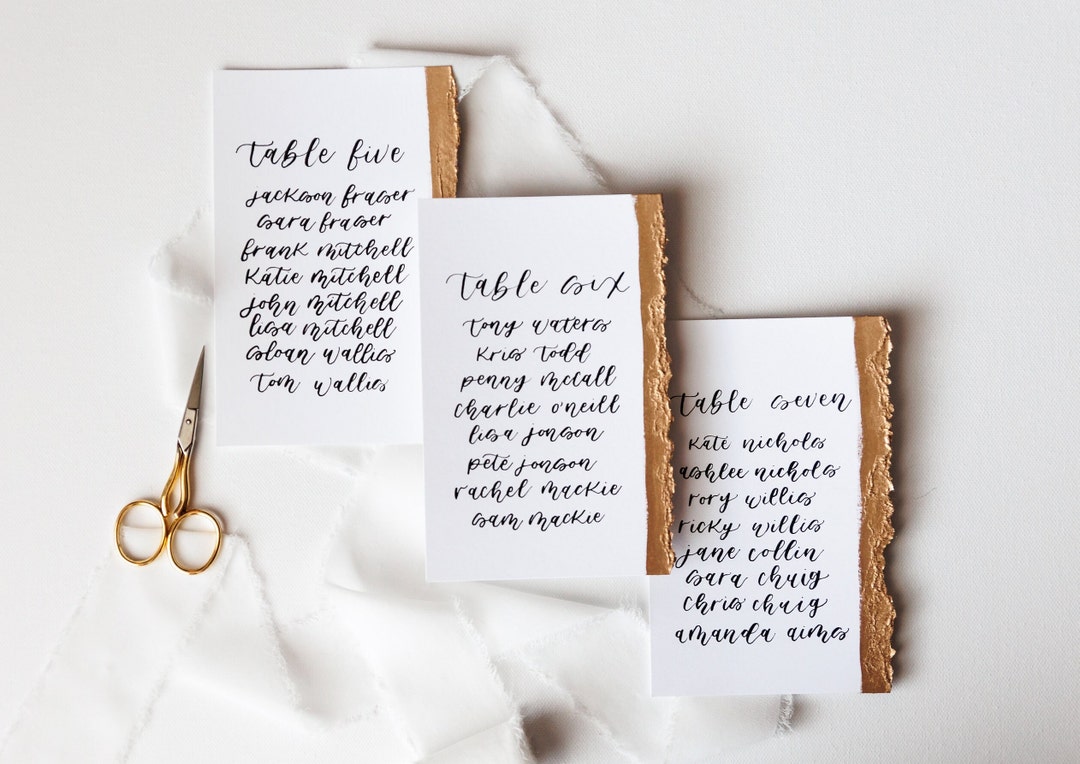 table five
jackson fraser
sara fraser
frank mitchell
katie mitchell
john mitchell
lisa mitchell
sloan wallis
tom wallis
table six
tony waters
kris todd
penny mccall
charlie o'neill
lisa jonson
pete jonson
rachel mackie
sam mackie
table seven
kate nichols
ashlee nichols
rory willis
ricky willis
jane collin
sara chuig
chris chuig
amanda aims